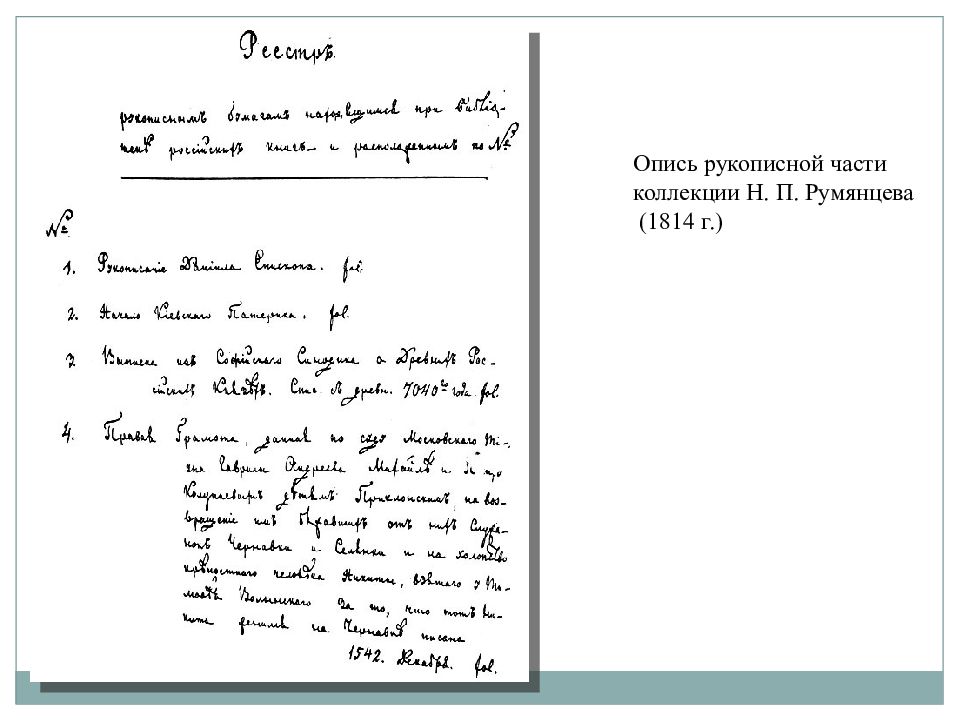 Реестръ
рукописнымъ бумагамъ находящимся при Библіо-
текѣ россійскихъ книгъ и расположеннымъ по №
№
1. Рукописаніе Даніила Епископа. fol.
2. Начало Кіевскаго Патерика. fol.
3 Выписка изъ Софійскаго Синодика о Древнихъ Рос-
сійскихъ Князьяхъ. Спис. въ древн. 7040го года fol.
4. Правая Грамота, данная по суду Московскаго Ті-
уна Гаврила Андреева и
дѣтямъ Приклонскимъ, на воз-
вращеніе имъ бѣжавшихъ отъ нихъ
Чернавки и и на холопство
крѣпостнаго человѣка Никиты, взятаго у
Волынскаго за то, что тотъ Ни-
кита на Чернавкѣ писана
1542. Декабря. fol.
Опись рукописной части
коллекции Н. П. Румянцева
(1814 г.)